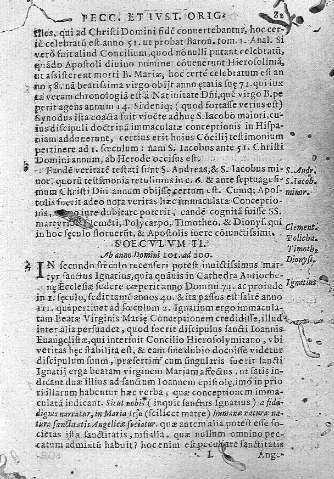 PECC. ET IUST. ORIG. 81
stles, qui ad Christi Domini fidē convertebantur, hoc cer-
tè celebratū est anno 51. ut probat Baron. tom. 1. Anal. Si
verò fuit aliud Concilium, quod nonulli putant celebratū,
quādo Apostoli divino numine convenerut Hierosolimā,
ut assisterent morti B. Mariæ, hoc certè celebratum est an
no 58. nā beatissima virgo obijt anno ætatis suę 72. qui iux
ta veram chronologiā est à Nativitate Dñi, quę virgo B. pe
perit agens annum 14. Si deniq; (quod fortasse verius est)
Synodus ista coacta fuit vivēte adhuc S. Iacobo maiori, cu
ius discipuli doctrinā immaculatæ conceptionis in Hispa
niam adduxerunt, certius erit huius Cōcilij testimonium
pertinere ad 1. sœculum: nam S. Iacobus ante 51. Christi
Domini annum, ab Herode occisus est.
Eandē veritatē testati sunt S. Andreas, & S. Iacobus mi
nor, quorū testimonia retulimus in c. 6. & ante septuagesi-
mum Christi Dñi annum obijsse certum est. Cunq; Apos-
tolis fuerit adeo nota veritas hæc immaculatæ Conceptio
nis, iure dubitare poterit, eandē cognitā fuisse SS.
martyrib. Clemēti, Polycarpo, Timotheo, & Dionys. qui
in hoc sœculo floruerūt, & Apostolis fuere coniunctissimi.
S. Andr.
S. Iacob.
minor.
Clement.
Policha.
Timoth.
Dionys.
SOECULUM II.
Ab anno Domini 101. ad 200.
2 IN secundo sœculo recenseri potest invictissimus mar-
tyr sanctus Ignatius, qui quāvis in Cathedra Antioche-
nę Ecclesiæ sedere cœperit anno Domini 71. ac proinde
in 1. sœculo, sedit tamē annos 40. & ita passus est sub
111. quo pertinet ad sœculum 2. Ignatium ergo immacula-
tam Beatæ Virginis Mariæ Conceptionem credidisse, illud
inter alia persuadet, quod fuerit discipulus sancti Ioannis
Euangelistæ, qui interfuit Concilio Hierosolymitano, ubi
veritas hęc stabilita est, & eam sine dubio docuisse videtur
discipulum suum, præsertim cum singularis fuerit sancti
Ignatij erga beatam virginem Mariam affectus, ut satis in-
dicant duæ illius ad sanctum Ioannem epistolę, imò in prio
ri illarum habentur hæc verba, quæ conceptionem imma-
culatā indicant. Sicut nobis (inquit sanctus Ignatius) a fide
dignis narratur, in Maria Iesu (scilicet matre) humanæ naturæ na-
tura sanctitatis Angelicæ sociatur. quæ autem alia potest esse so-
cietas ista sanctitatis, nisi illa, quæ nullum omnino pec-
catum admixtū habuit? hoc enim est
Ignatius
L Ang-